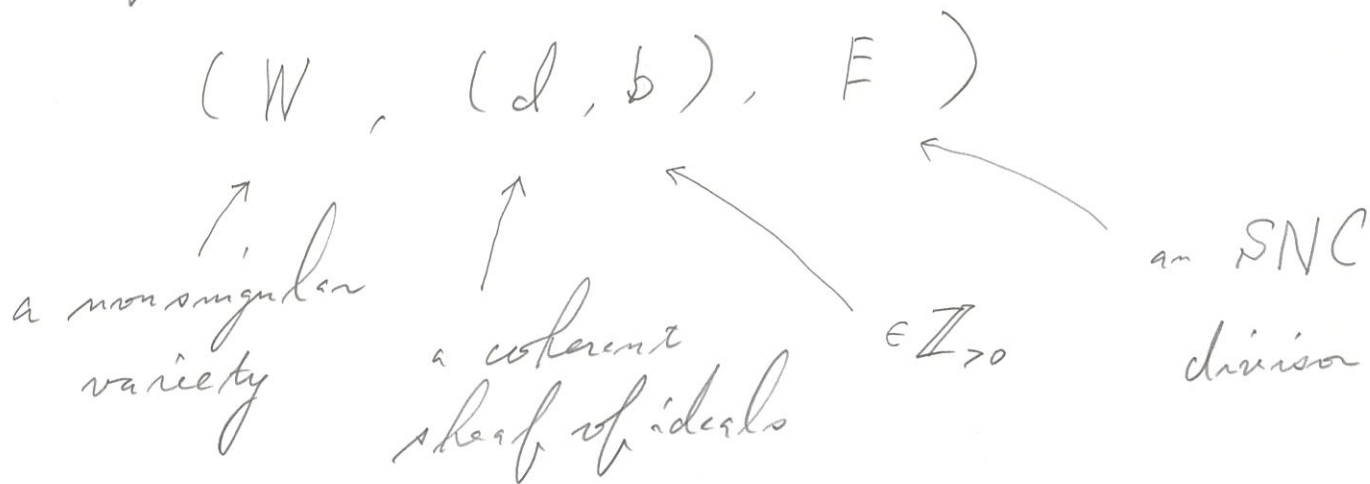 ( W , ( d , b ) , E )
a nonsingular variety
a coherent sheaf of ideals
∈ ℤ>0
an SNC divisor